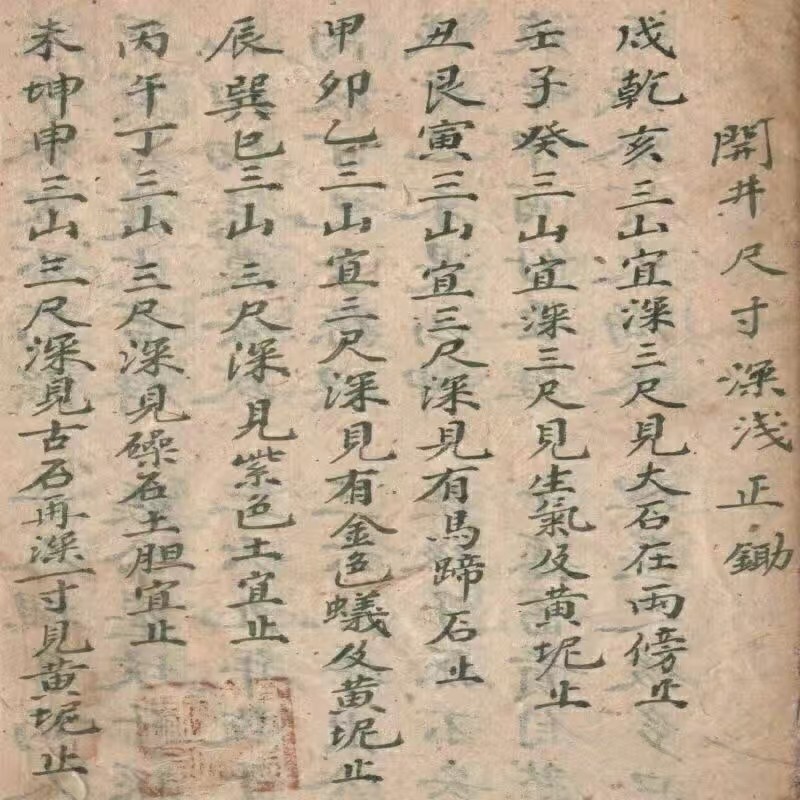 開井尺寸深浅正鋤
戍乾亥三山宜深三尺見大石在兩傍止
壬子癸三山宜深三尺見生氣及黄坭止
丑艮寅三山宜三尺深見有馬蹄石止
甲卯乙三山宜三尺深見有金色蟻及黄坭止
辰巽巳三山三尺深見紫色土宜止
丙午丁三山三尺深見磉石土胆宜止
未坤申三山三尺深見古石再深一寸見黄坭止